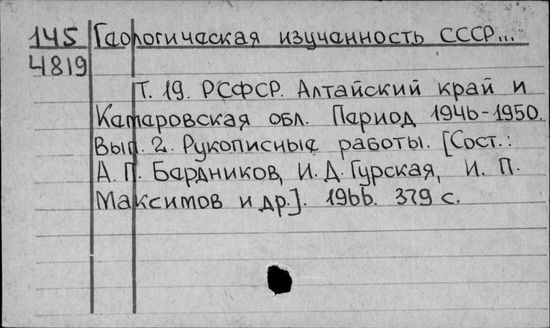 145 Геологическая изученность СССР...
4819
Т. 19. РСФСР. Алтайский край и
Кемеровская обл. Период 1946-1950.
Вып. 2. Рукописные работы. [Сост.:
А. П. Бардников, И. Д. Гурская, И. П.
Максимов и др.]. 1966. 379 с.